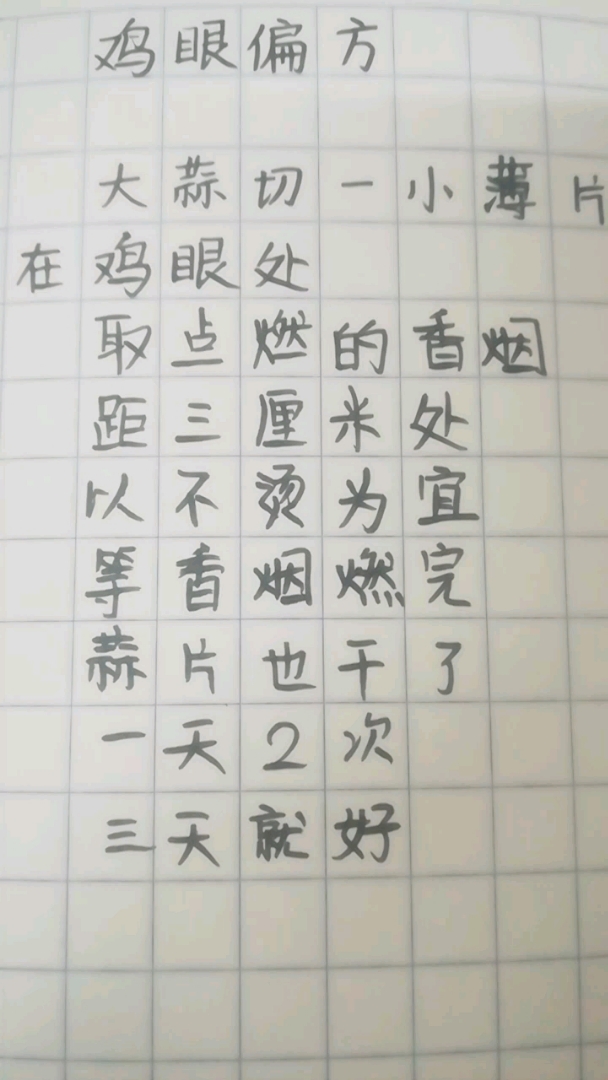 鸡眼偏方
大蒜切一小薄片
在鸡眼处
取点燃的香烟
距三厘米处
以不烫为宜
等香烟燃完
蒜片也干了
一天2次
三天就好